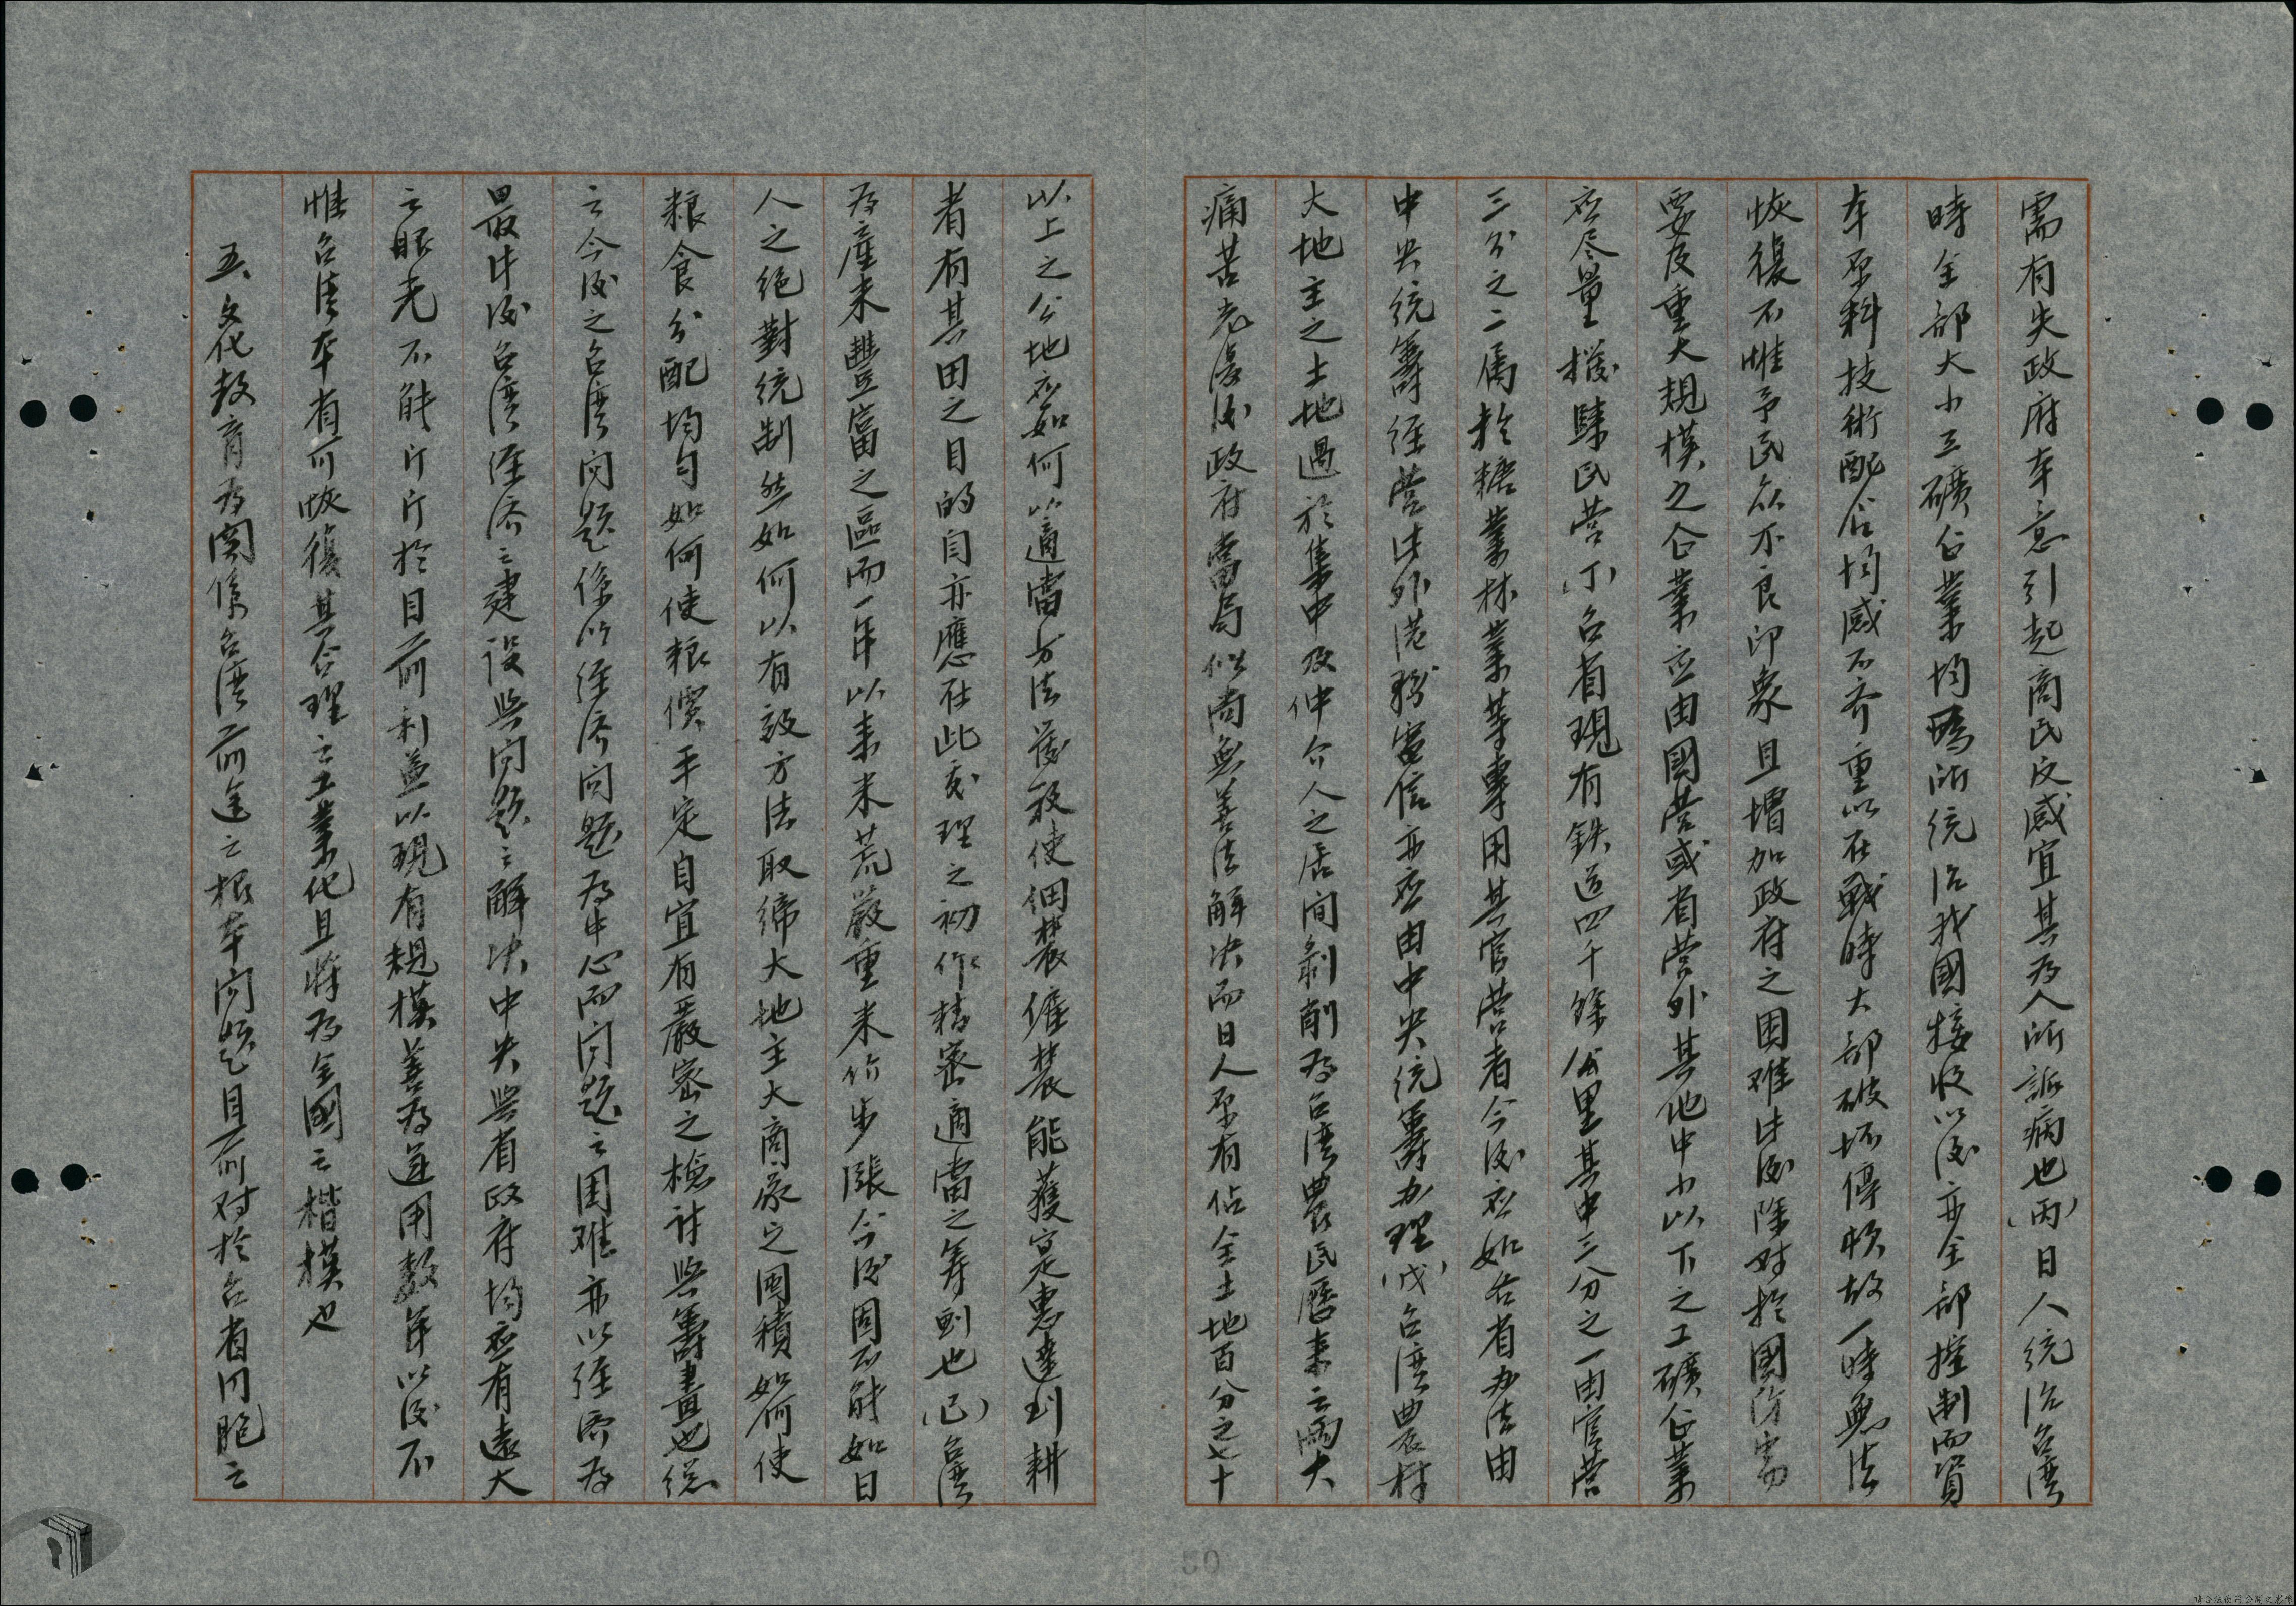 需有失政府本意引起商民反感宜其为人所詬病也(丙)日人統治台湾
時全部大小工礦企業均為所統治我國接收以后亦全部控制而資
本原料技術配合均感不齐重以在戰時大部破坏停頓故一時無法
恢復不惟予民众不良印象且增加政府之困难此后除对於國防需
要及重大規模之企業应由國营或省营外其他中小以下之工礦企業
应尽量撥歸民营(丁)台省現有鉄道四千餘公里其中三分之一由官营
三分之二属於糖業林業等專用共官营者今后应如各省办法由
中央統籌經营此外港務電信亦应由中央統籌办理(戊)台湾農村
大地主之土地過於集中及仲介人之居间剝削为台湾農民歷来之兩大
痛苦光復后政府當局似尚無善法解决而日人原有佔全土地百分之七十
以上之公地应如何以適當方法發放使佃農僱農能獲实惠達到耕
者有其田之目的自亦應在此处理之初作精密適當之筹劃也(己)台湾
为產米豐富之區而一年以来米荒嚴重米价步漲今后固不能如日
人之絕對統制然如何以有效方法取缔大地主大商家之囤積如何使
粮食分配均匀如何使粮價平定自宜有嚴密之檢討與籌畫也总
之今后之台湾问题係以经济问题为中心而问题之困难亦以经济为
最此后台湾经济之建设與问题之解决中央與省政府均应有遠大
之眼光不能斤斤於目前利益以現有規模善为运用数年以后不
惟台湾本省可恢復其合理之工業化且将为全國之楷模也
五、文化教育为関係台湾前途之根本问题目前对於台省同胞之
50